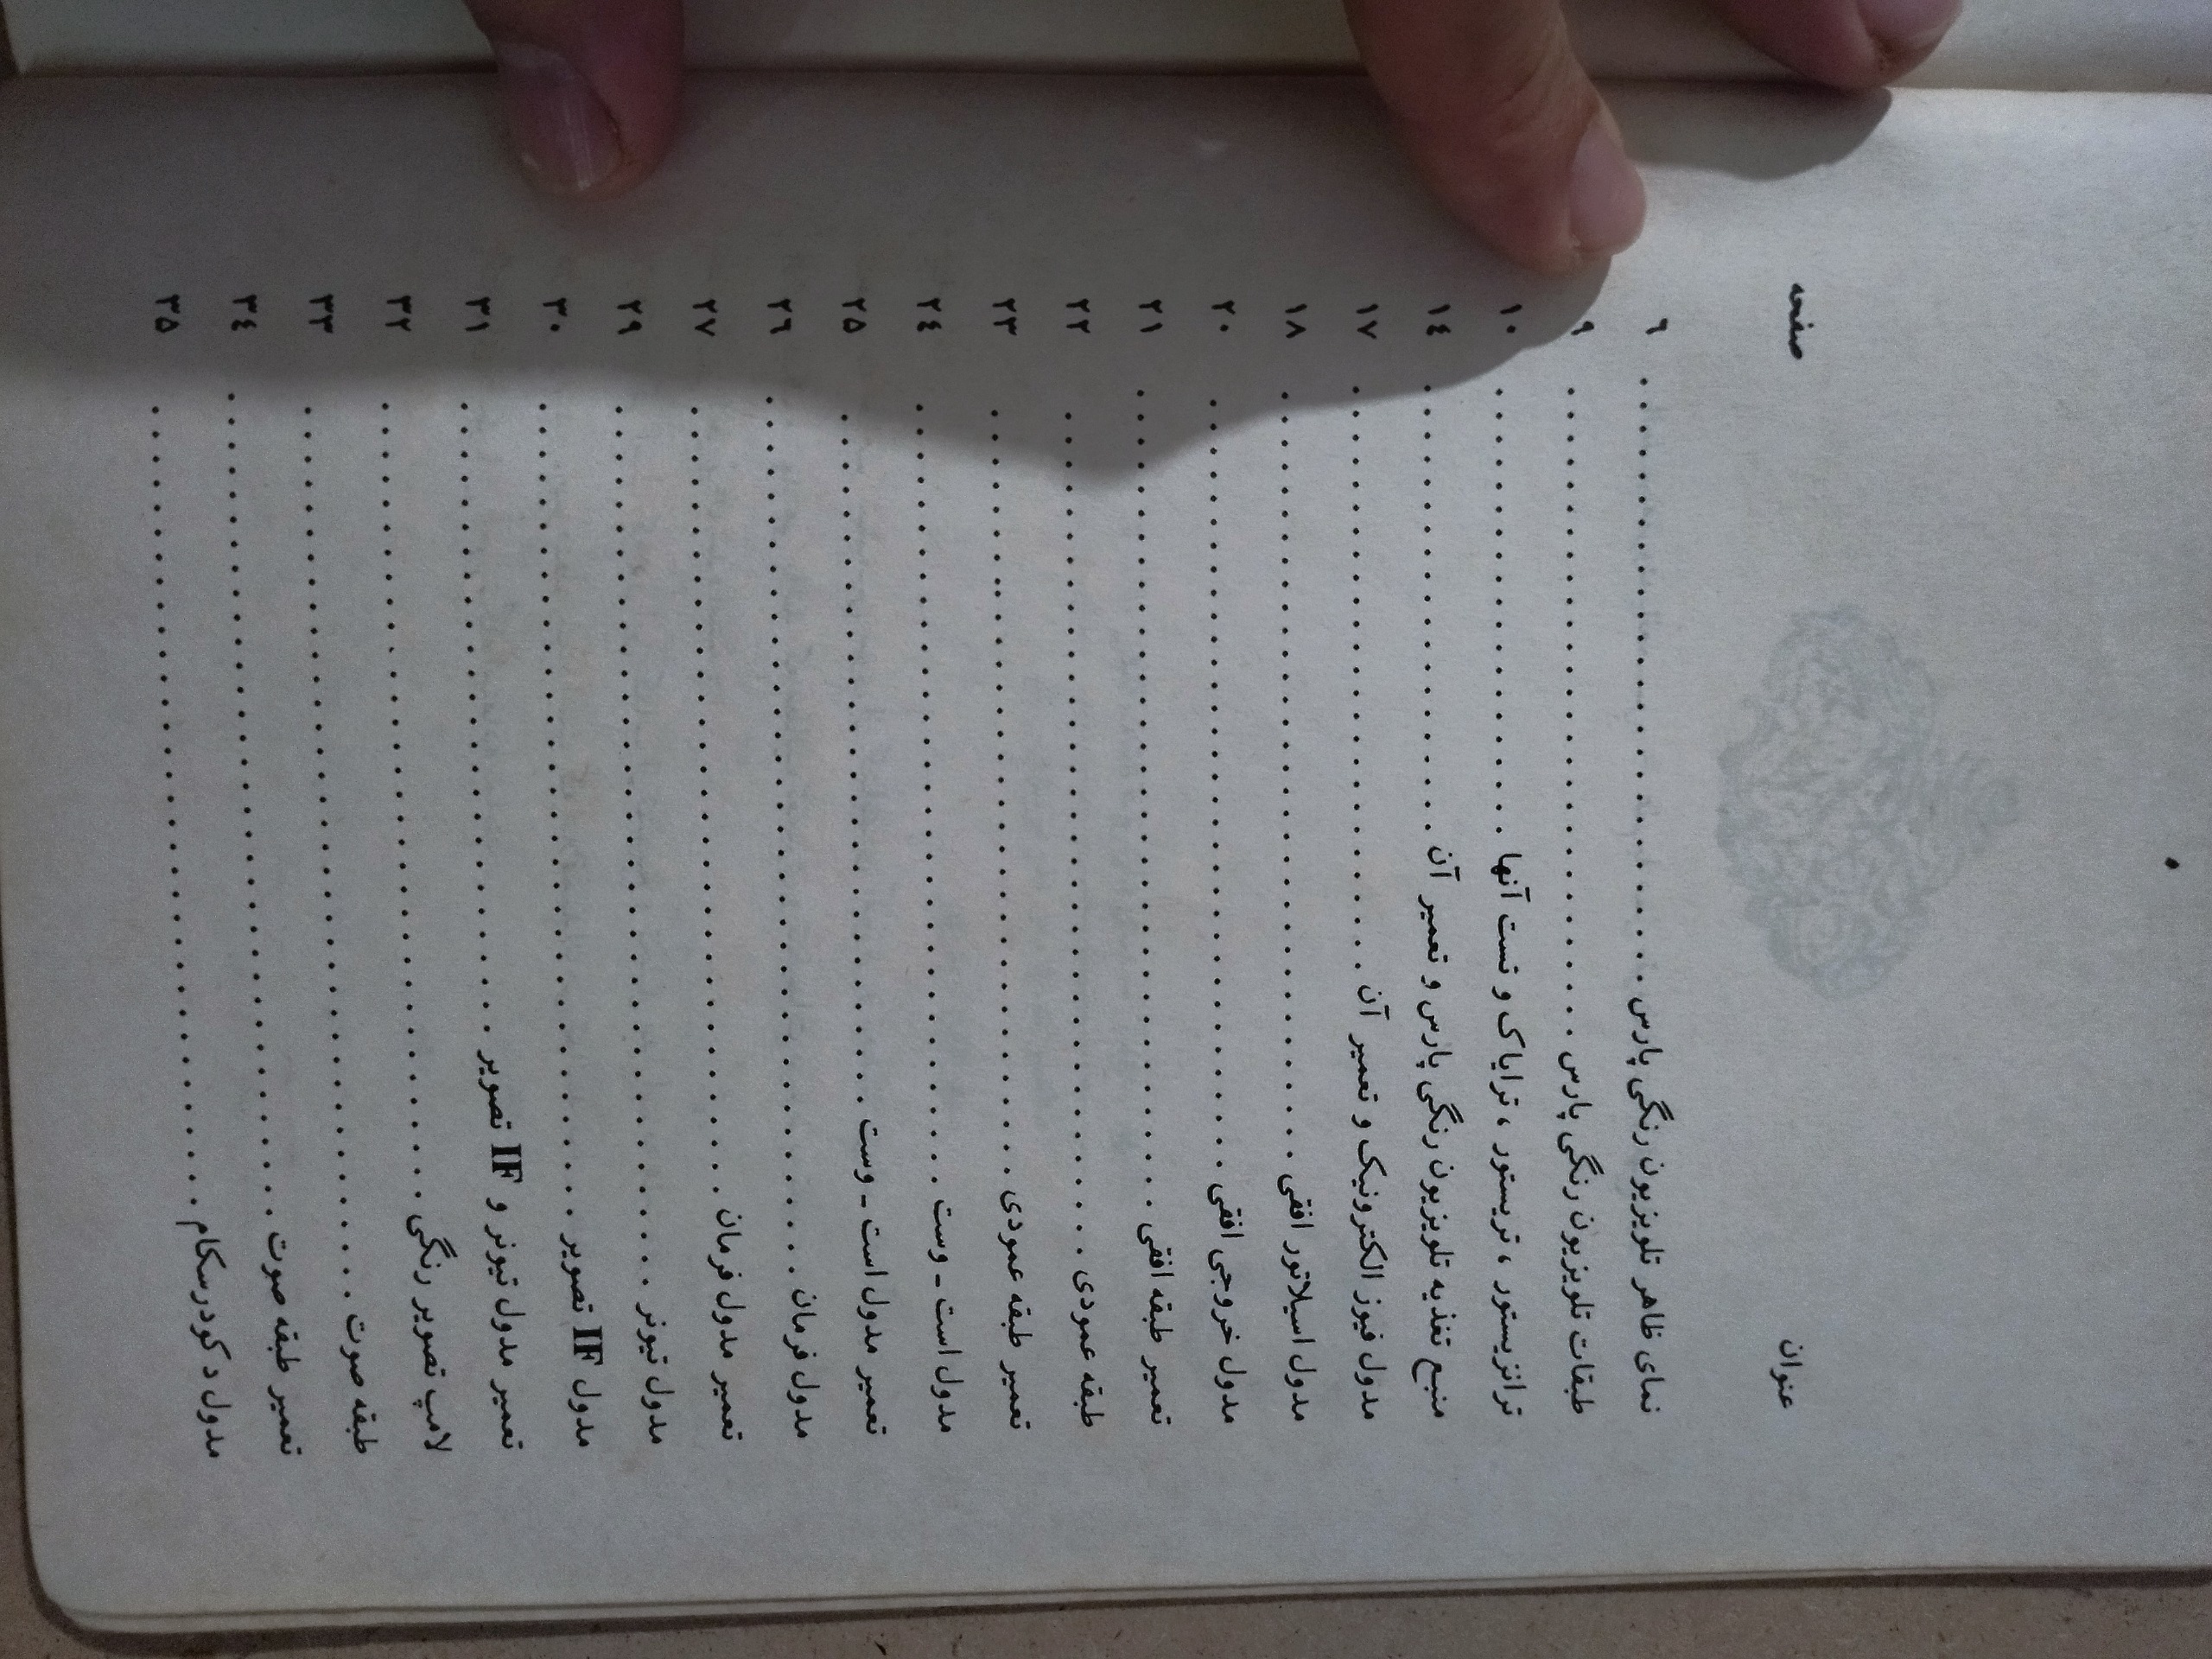 عنوان صفحه
نمای ظاهر تلویزیون رنگی پارس . . . . . . . . . . . . . . . . . . . . . . . . ٦
طبقات تلویزیون رنگی پارس . . . . . . . . . . . . . . . . . . . . . . . . ۹
ترانزیستور ، تریستور ، ترایاک و تست آنها . . . . . . . . . . . . . . . . . . ۱۰
منبع تغذیه تلویزیون رنگی پارس و تعمیر آن . . . . . . . . . . . . . . . . . . ۱٤
مدول فیوز الکترونیک و تعمیر آن . . . . . . . . . . . . . . . . . . . . . . . . ۱۷
مدول اسیلاتور افقی . . . . . . . . . . . . . . . . . . . . . . . . . . . . . . ۱۸
مدول خروجی افقی . . . . . . . . . . . . . . . . . . . . . . . . . . . . . . ۲۰
تعمیر طبقه افقی . . . . . . . . . . . . . . . . . . . . . . . . . . . . . . ۲۱
طبقه عمودی . . . . . . . . . . . . . . . . . . . . . . . . . . . . . . . . ۲۲
تعمیر طبقه عمودی . . . . . . . . . . . . . . . . . . . . . . . . . . . . . . ۲۳
مدول است ـ وست . . . . . . . . . . . . . . . . . . . . . . . . . . . . . . ۲٤
تعمیر مدول است ـ وست . . . . . . . . . . . . . . . . . . . . . . . . . . . . ۲۵
مدول فرمان . . . . . . . . . . . . . . . . . . . . . . . . . . . . . . . . ۲٦
تعمیر مدول فرمان . . . . . . . . . . . . . . . . . . . . . . . . . . . . . . ۲۷
مدول تیونر . . . . . . . . . . . . . . . . . . . . . . . . . . . . . . . . ۲۹
مدول IF تصویر . . . . . . . . . . . . . . . . . . . . . . . . . . . . . . ۳۰
تعمیر مدول تیونر و IF تصویر . . . . . . . . . . . . . . . . . . . . . . . . ۳۱
لامپ تصویر رنگی . . . . . . . . . . . . . . . . . . . . . . . . . . . . . . ۳۲
طبقه صوت . . . . . . . . . . . . . . . . . . . . . . . . . . . . . . . . ۳۳
تعمیر طبقه صوت . . . . . . . . . . . . . . . . . . . . . . . . . . . . . . ۳٤
مدول دکودرسکام . . . . . . . . . . . . . . . . . . . . . . . . . . . . . . ۳۵